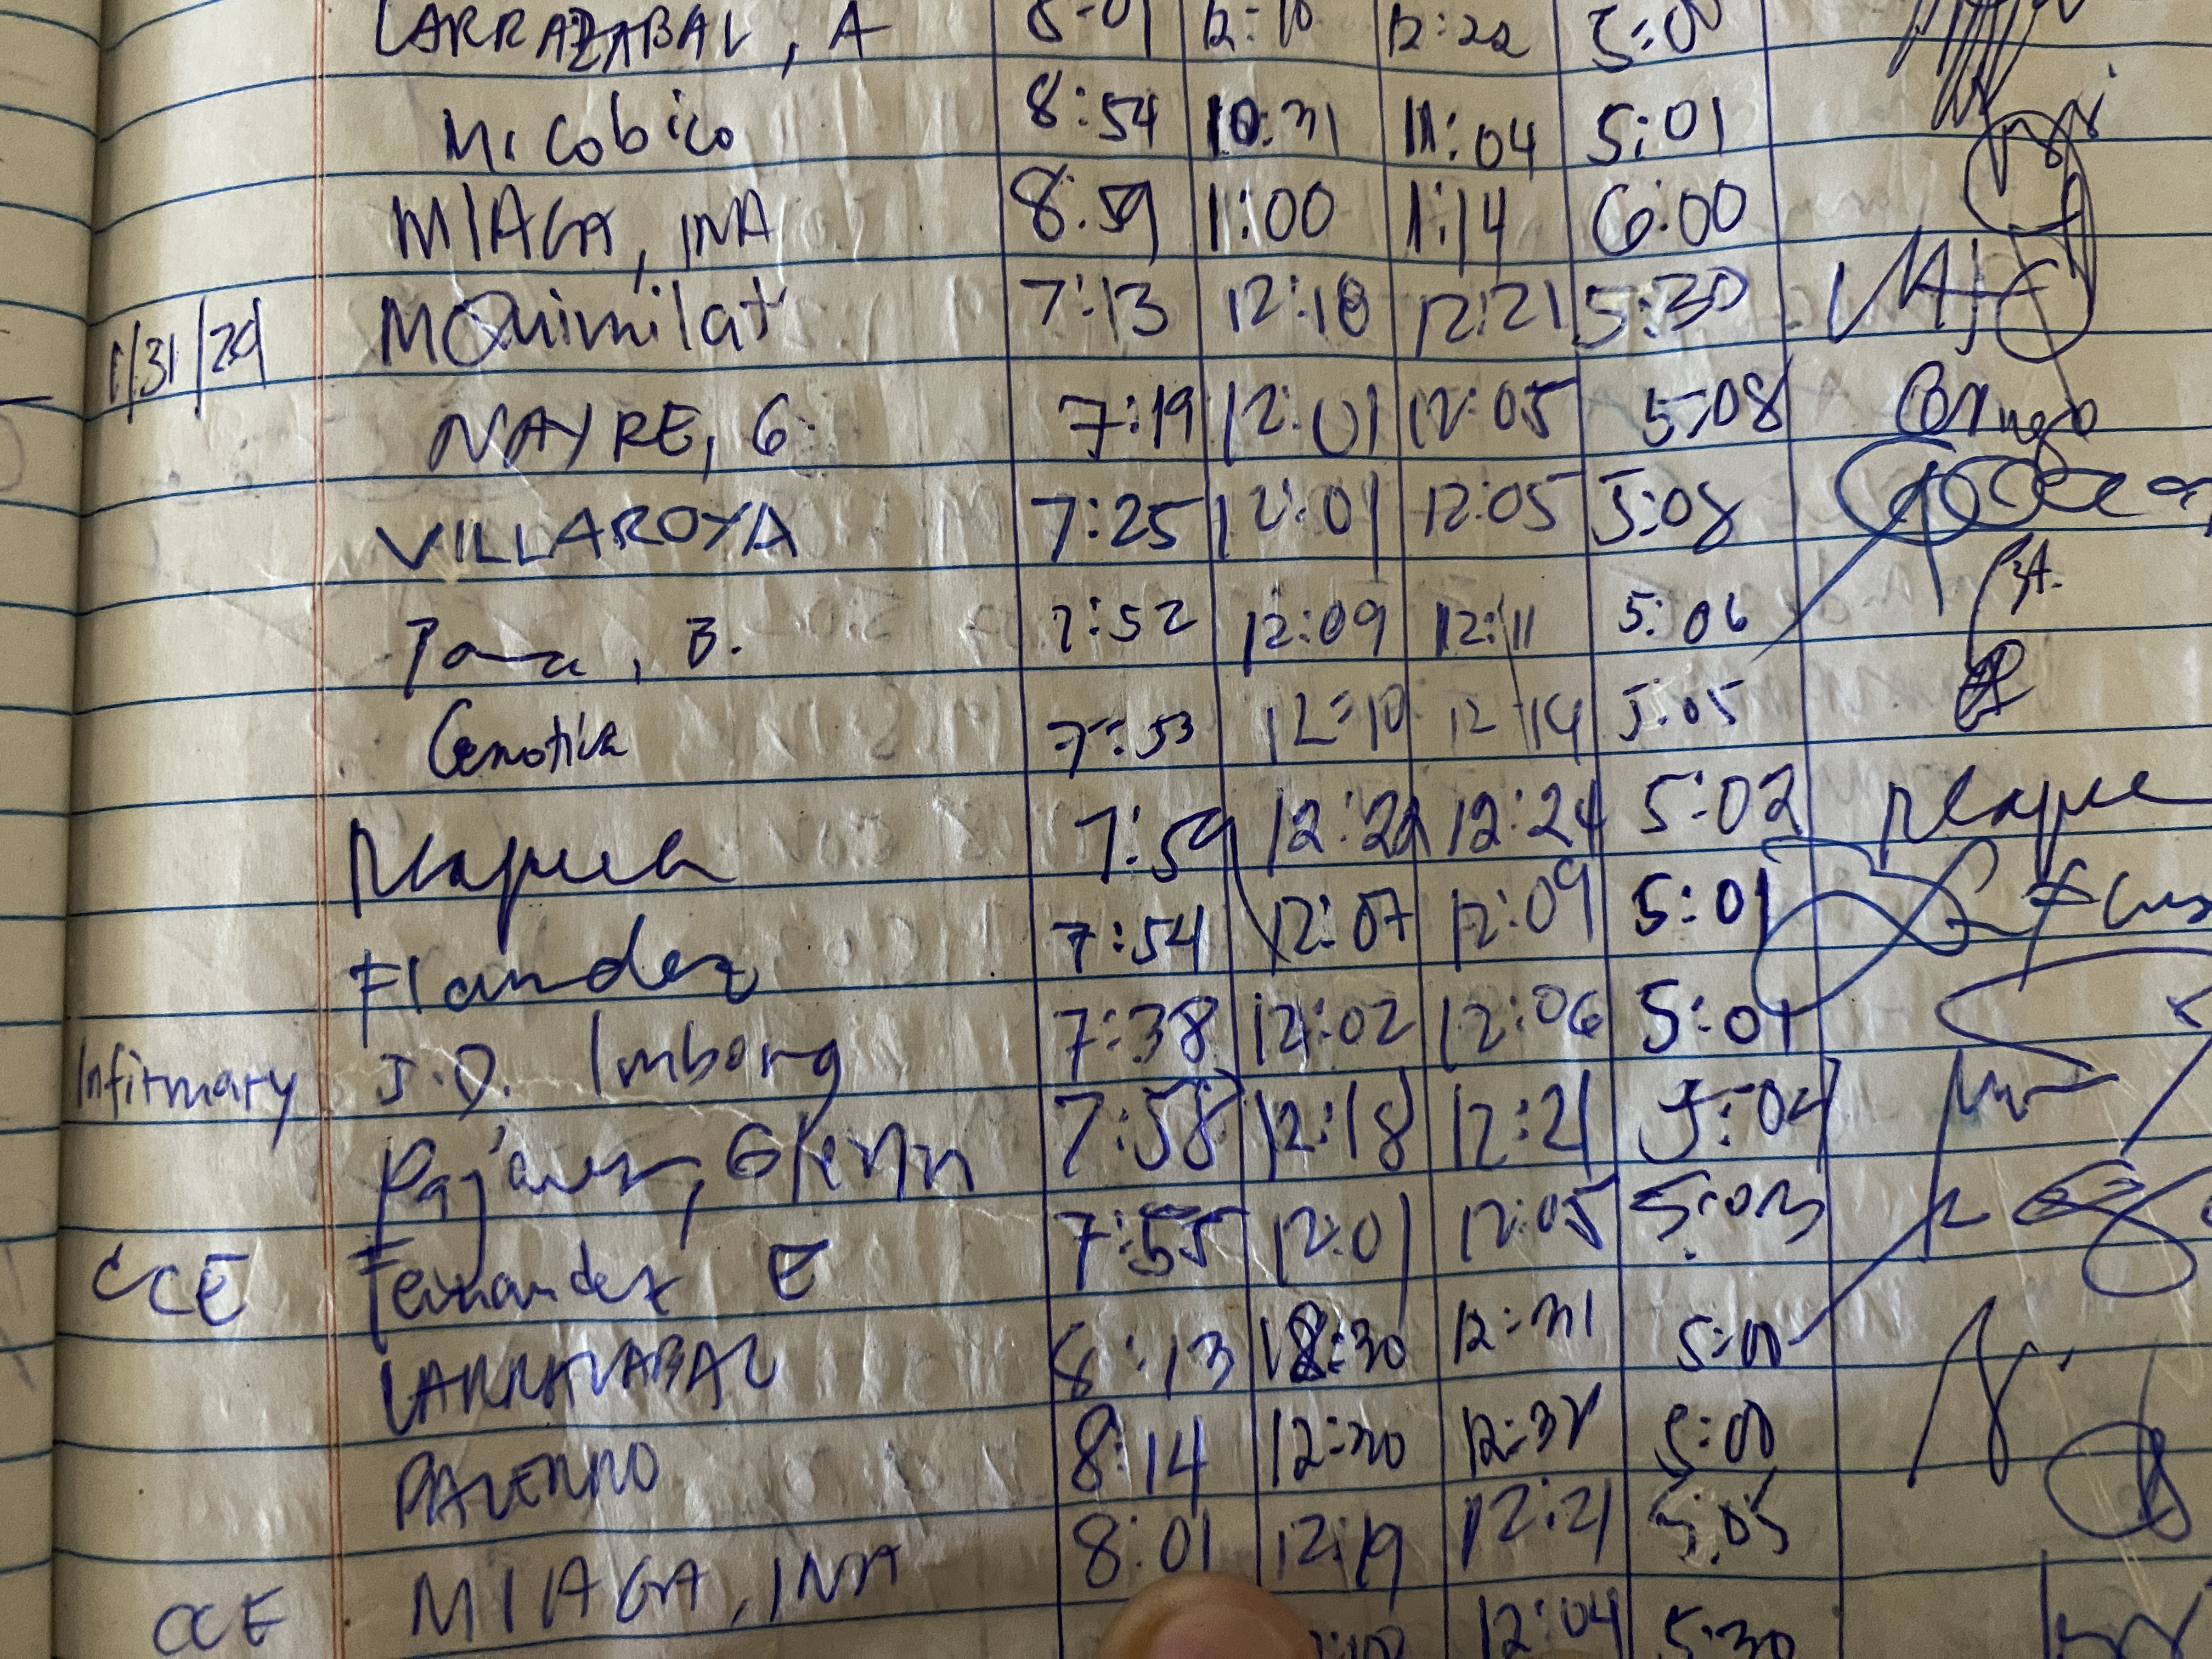 LARRAZABAL, A 8:01 12:10 12:22 5:00
Micobico 8:54 10:31 11:04 5:01
MIAGA, INA 8:59 1:00 1:14 6:00
1/31/24 MQuimilat 7:13 12:18 12:21 5:30
NAYRE, G. 7:19 12:01 12:05 5:08
VILLAROYA 7:25 12:01 12:05 5:08
B. 7:52 12:09 12:11 5:06
7:53 12:10 12:14 5:05
7:59 12:22 12:24 5:02
Flandez 7:54 12:07 12:09 5:01
Infirmary J.D. Imborg 7:38 12:02 12:06 5:01
Glenn 7:58 12:18 12:21 5:04
CCE Fernandez E 7:55 12:01 12:05 5:03
LARRAZABAL 8:13 12:30 12:31 5:00
PALERMO 8:14 12:30 12:32 5:00
CCE MIAGA, INA 8:01 12:19 12:21 5:05
12:04 5:30